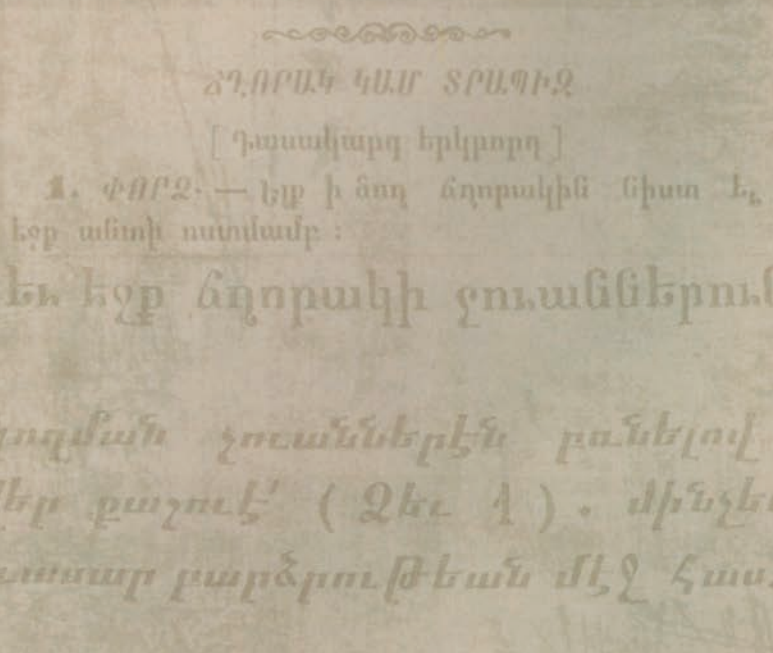 ՃՂՈՐԱԿ ԿԱՄ ՏՐԱՊԻԶ
[ Դասակարգ երկրորդ ]
1. ՓՈՐՁ. — Ելք ի ձող ճղորակին նիստ եւ
էջք անտի ոստմամբ :
Եւ էջք ճղորակի չուաններուն
չուաններէն բռնելով
քաշուէ՛ ( Ձեւ 1 ) . մինչեւ
բարձրութեան մէջ հաս